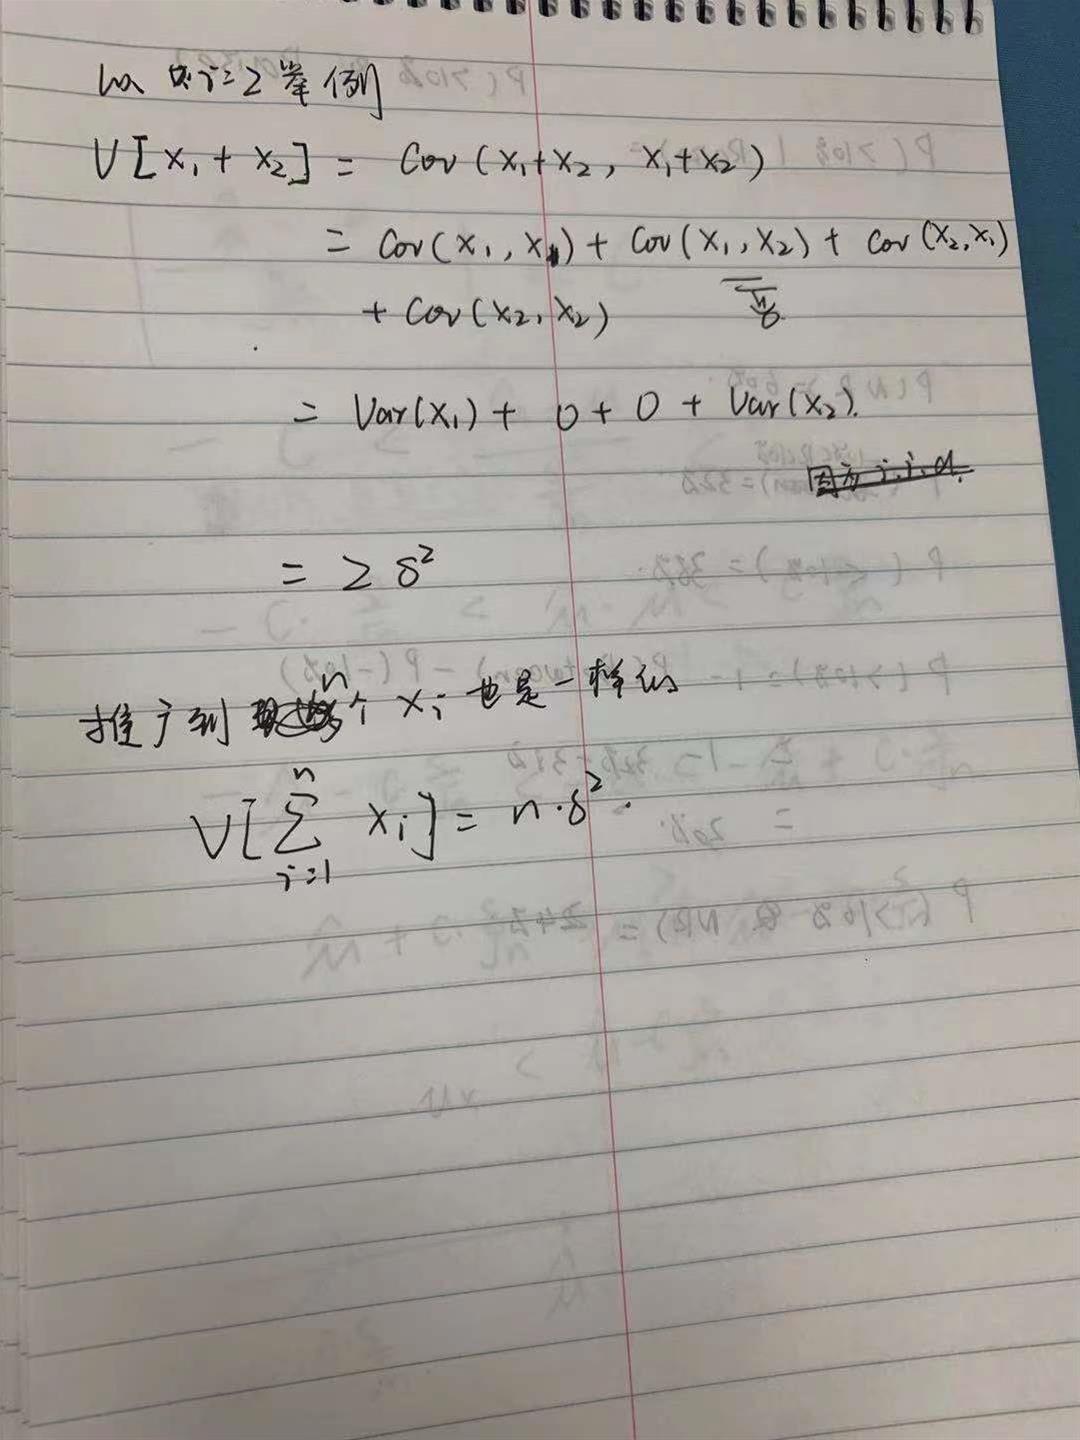 以 i=2 举例
V[X₁ + X₂] = Cov(X₁+X₂, X₁+X₂)
= Cov(X₁, X₁) + Cov(X₁, X₂) + Cov(X₂, X₁)
+ Cov(X₂, X₂)
= Var(X₁) + 0 + 0 + Var(X₂).
因为 i.i.d.
= 2 δ²
推广到 n个 Xᵢ 也是一样的
V[∑ⁿᵢ₌₁ Xᵢ] = n·δ².